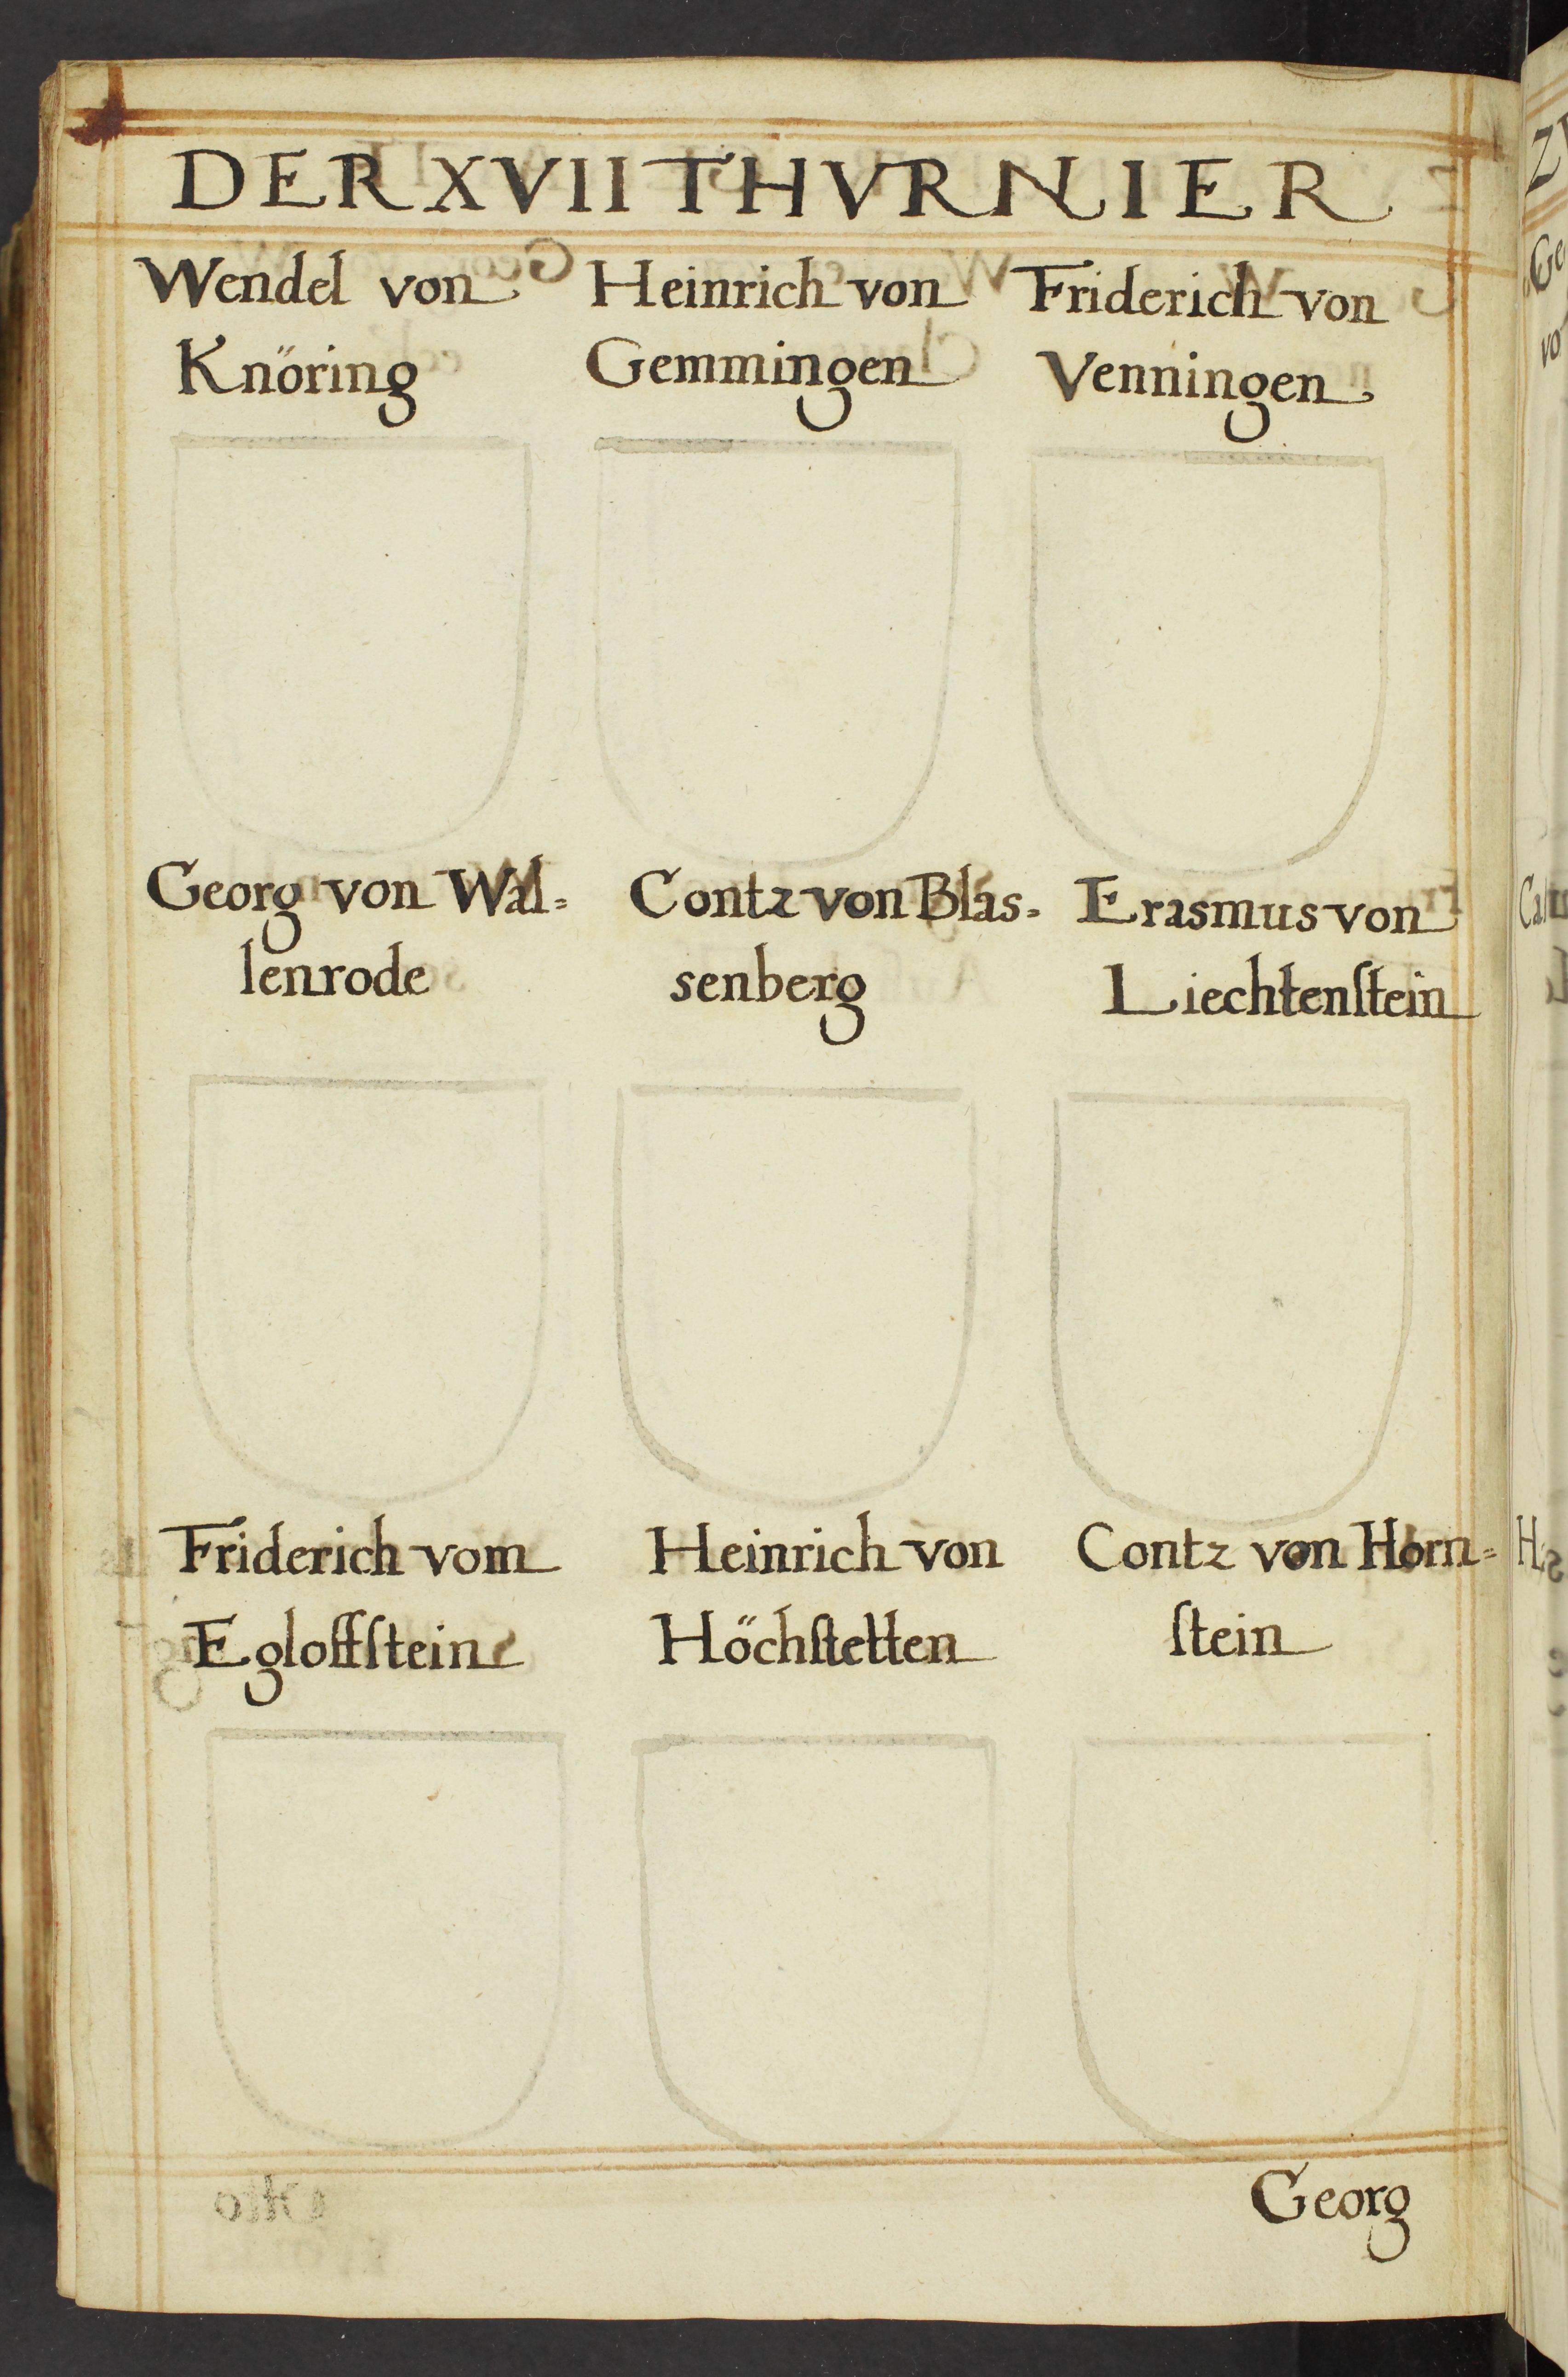 DER XVII THVRNIER
Wendel von
Knöring
Heinrich von
Gemmingen
Friderich von
Venningen
Georg von Wal=
lenrode
Contz von Blas=
senberg
Erasmus von
Liechtenſtein
Friderich vom
Egloffſtein
Heinrich von
Höchſtetten
Contz von Horn=
ſtein
Georg